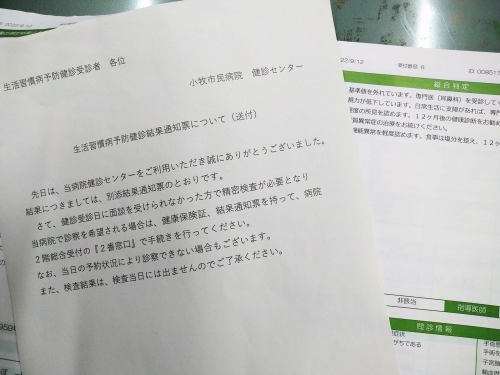 生活習慣病予防健診受診者 各位
小牧市民病院 健診センター
生活習慣病予防健診結果通知票について（送付）
先日は、当病院健診センターをご利用いただき誠にありがとうございました。
結果につきましては、別添結果通知票のとおりです。
さて、健診受診日に面談を受けられなかった方で精密検査が必要となり
当病院で診察を希望される場合は、健康保険証、結果通知票を持って、病院
２階総合受付の『２番窓口』で手続きを行ってください。
なお、当日の予約状況により診察できない場合もございます。
また、検査結果は、検査当日には出ませんのでご了承ください。
22/9/12
受付番号 6
総合判定
基準値を外れています。専門医（耳鼻科）を受診して
聴力が低下しています。日常生活に支障があれば、専門
の所見を認めます。１２ヶ月後の健康診断をお勧め
質異常症の治療をお続けください。
機能異常を軽度認めます。食事は塩分を控え、１２ヶ
非該当
指導医師
問診情報